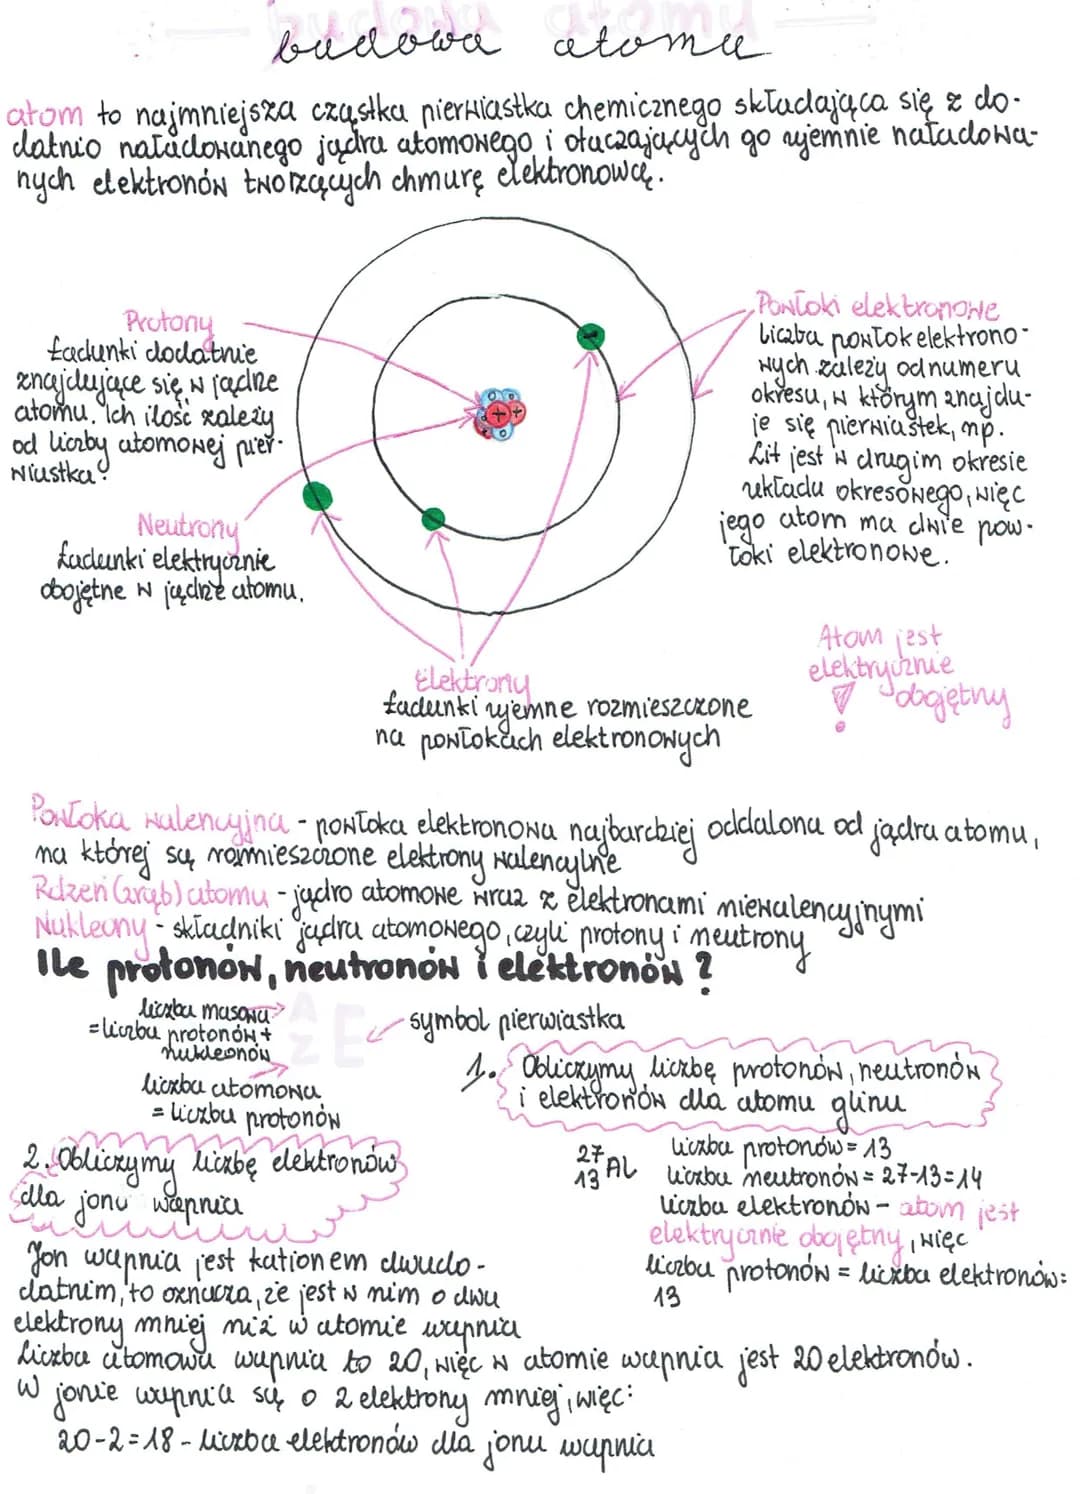 budowa atomu
budowa atomu
atom to najmniejsza cząstka pierwiastka chemicznego składająca się z do-
datnio naładowanego jądra atomowego i otaczających go ujemnie naładowa-
nych elektronów tworzących chmurę elektronową.
Protony
ładunki dodatnie
znajdujące się w jądrze
atomu. Ich ilość zależy
od liczby atomowej pier-
wiastka.
Neutrony
ładunki elektrycznie
obojętne w jądrze atomu.
Powłoki elektronowe
liczba powłok elektrono-
wych zależy od numeru
okresu, w którym znajdu-
je się pierwiastek, np.
Lit jest w drugim okresie
układu okresowego, więc
jego atom ma dwie pow-
łoki elektronowe.
Elektrony
ładunki ujemne rozmieszczone
na powłokach elektronowych
Atom jest
elektrycznie
obojętny
!
Powłoka walencyjna - powłoka elektronowa najbardziej oddalona od jądra atomu,
na której są rozmieszczone elektrony walencyjne
Rdzeń (zrąb) atomu - jądro atomowe wraz z elektronami niewalencyjnymi
Nukleony - składniki jądra atomowego, czyli protony i neutrony
Ile protonów, neutronów i elektronów ?
liczba masowa
= liczba protonów +
nukleonów
liczba atomowa
= liczba protonów
A
Z E
symbol pierwiastka
1. Obliczymy liczbę protonów, neutronów
i elektronów dla atomu glinu
27
13 Al
liczba protonów = 13
liczba neutronów = 27-13=14
liczba elektronów - atom jest
elektrycznie obojętny, więc
liczba protonów = liczba elektronów:
13
2. Obliczymy liczbę elektronów
dla jonu wapnia
Jon wapnia jest kationem dwudo-
datnim, to oznacza, że jest w nim o dwa
elektrony mniej niż w atomie wapnia
Liczba atomowa wapnia to 20, więc w atomie wapnia jest 20 elektronów.
W jonie wapnia są o 2 elektrony mniej, więc:
20-2=18 - liczba elektronów dla jonu wapnia